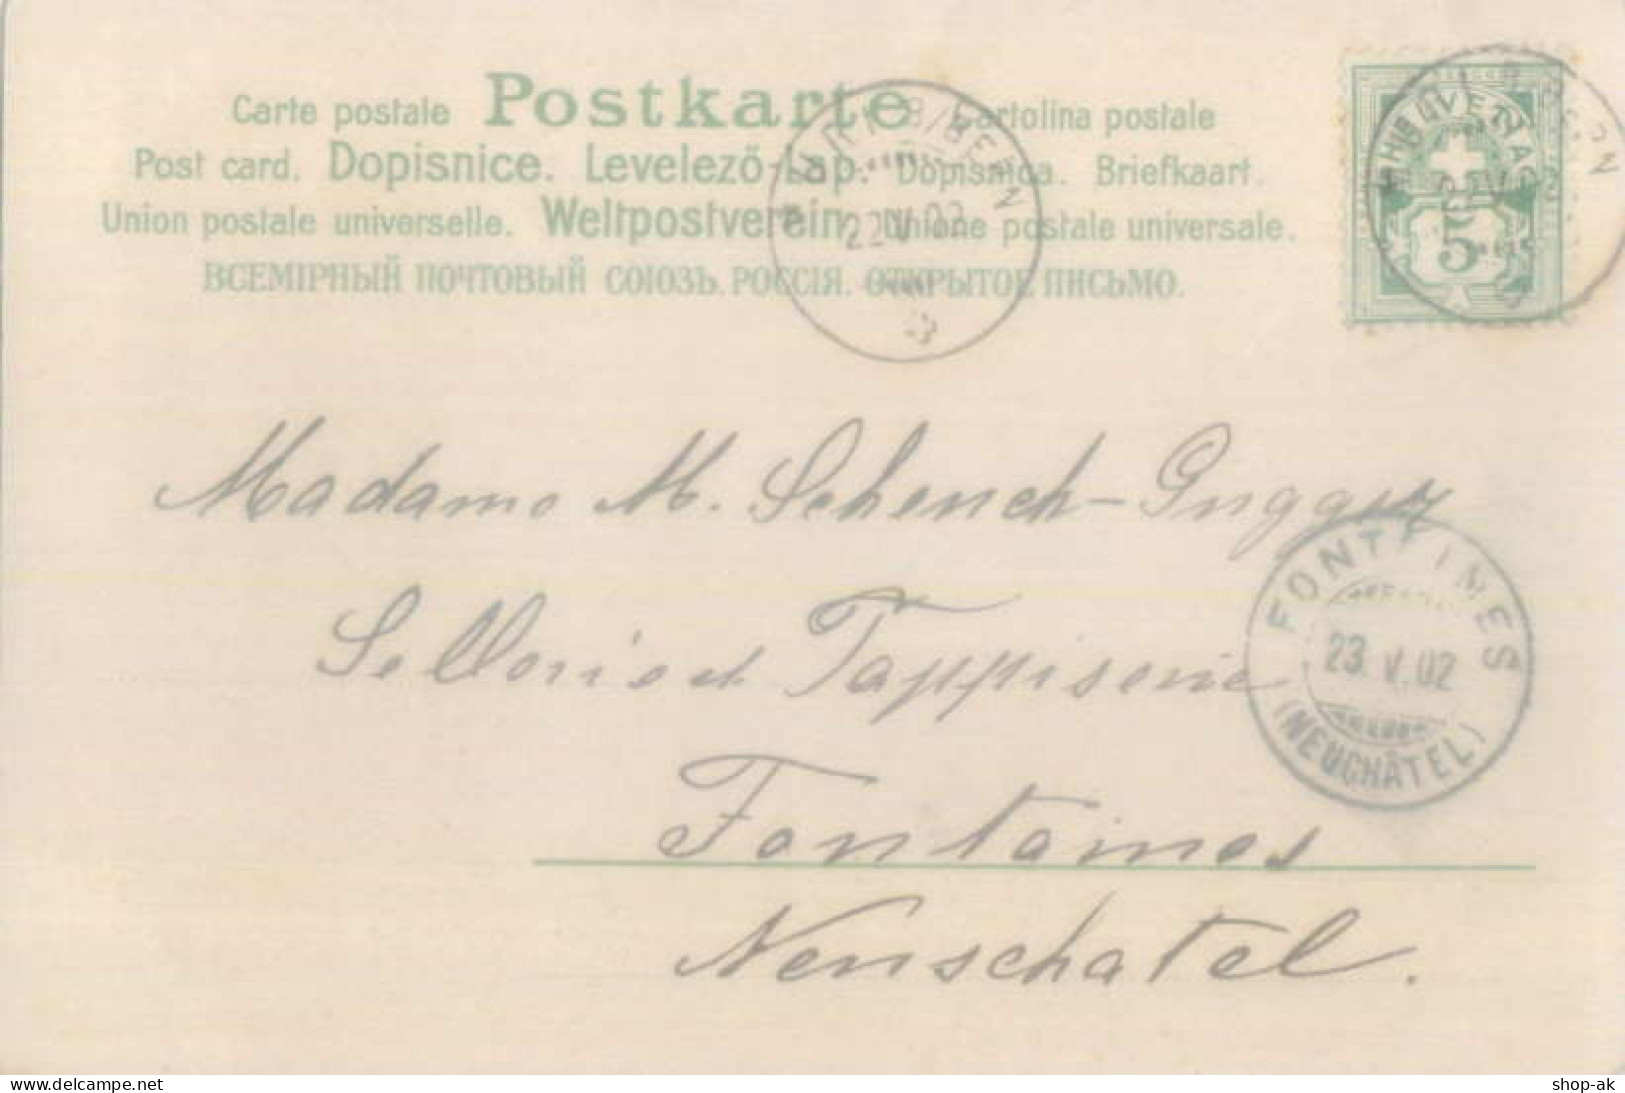 Carte postale Postkarte Cartolina postale
Post card. Dopisnice. Levelező-Lap. Dopisnica. Briefkaart.
Union postale universelle. Weltpostverein. Unione postale universale.
ВСЕМІРНЫЙ ПОЧТОВЫЙ СОЮЗЪ. РОССІЯ. ОТКРЫТОЕ ПИСЬМО.
MURI B/BERN
22 V 02
HELVETIA
5
Madame M. Schench-Gugger
Sellerie et Tappiserie
Fontaines
Neuschatel.
FONTAINES
23. V. 02
(NEUCHÂTEL)
www.ansichtskartenversand.com
shop-ak